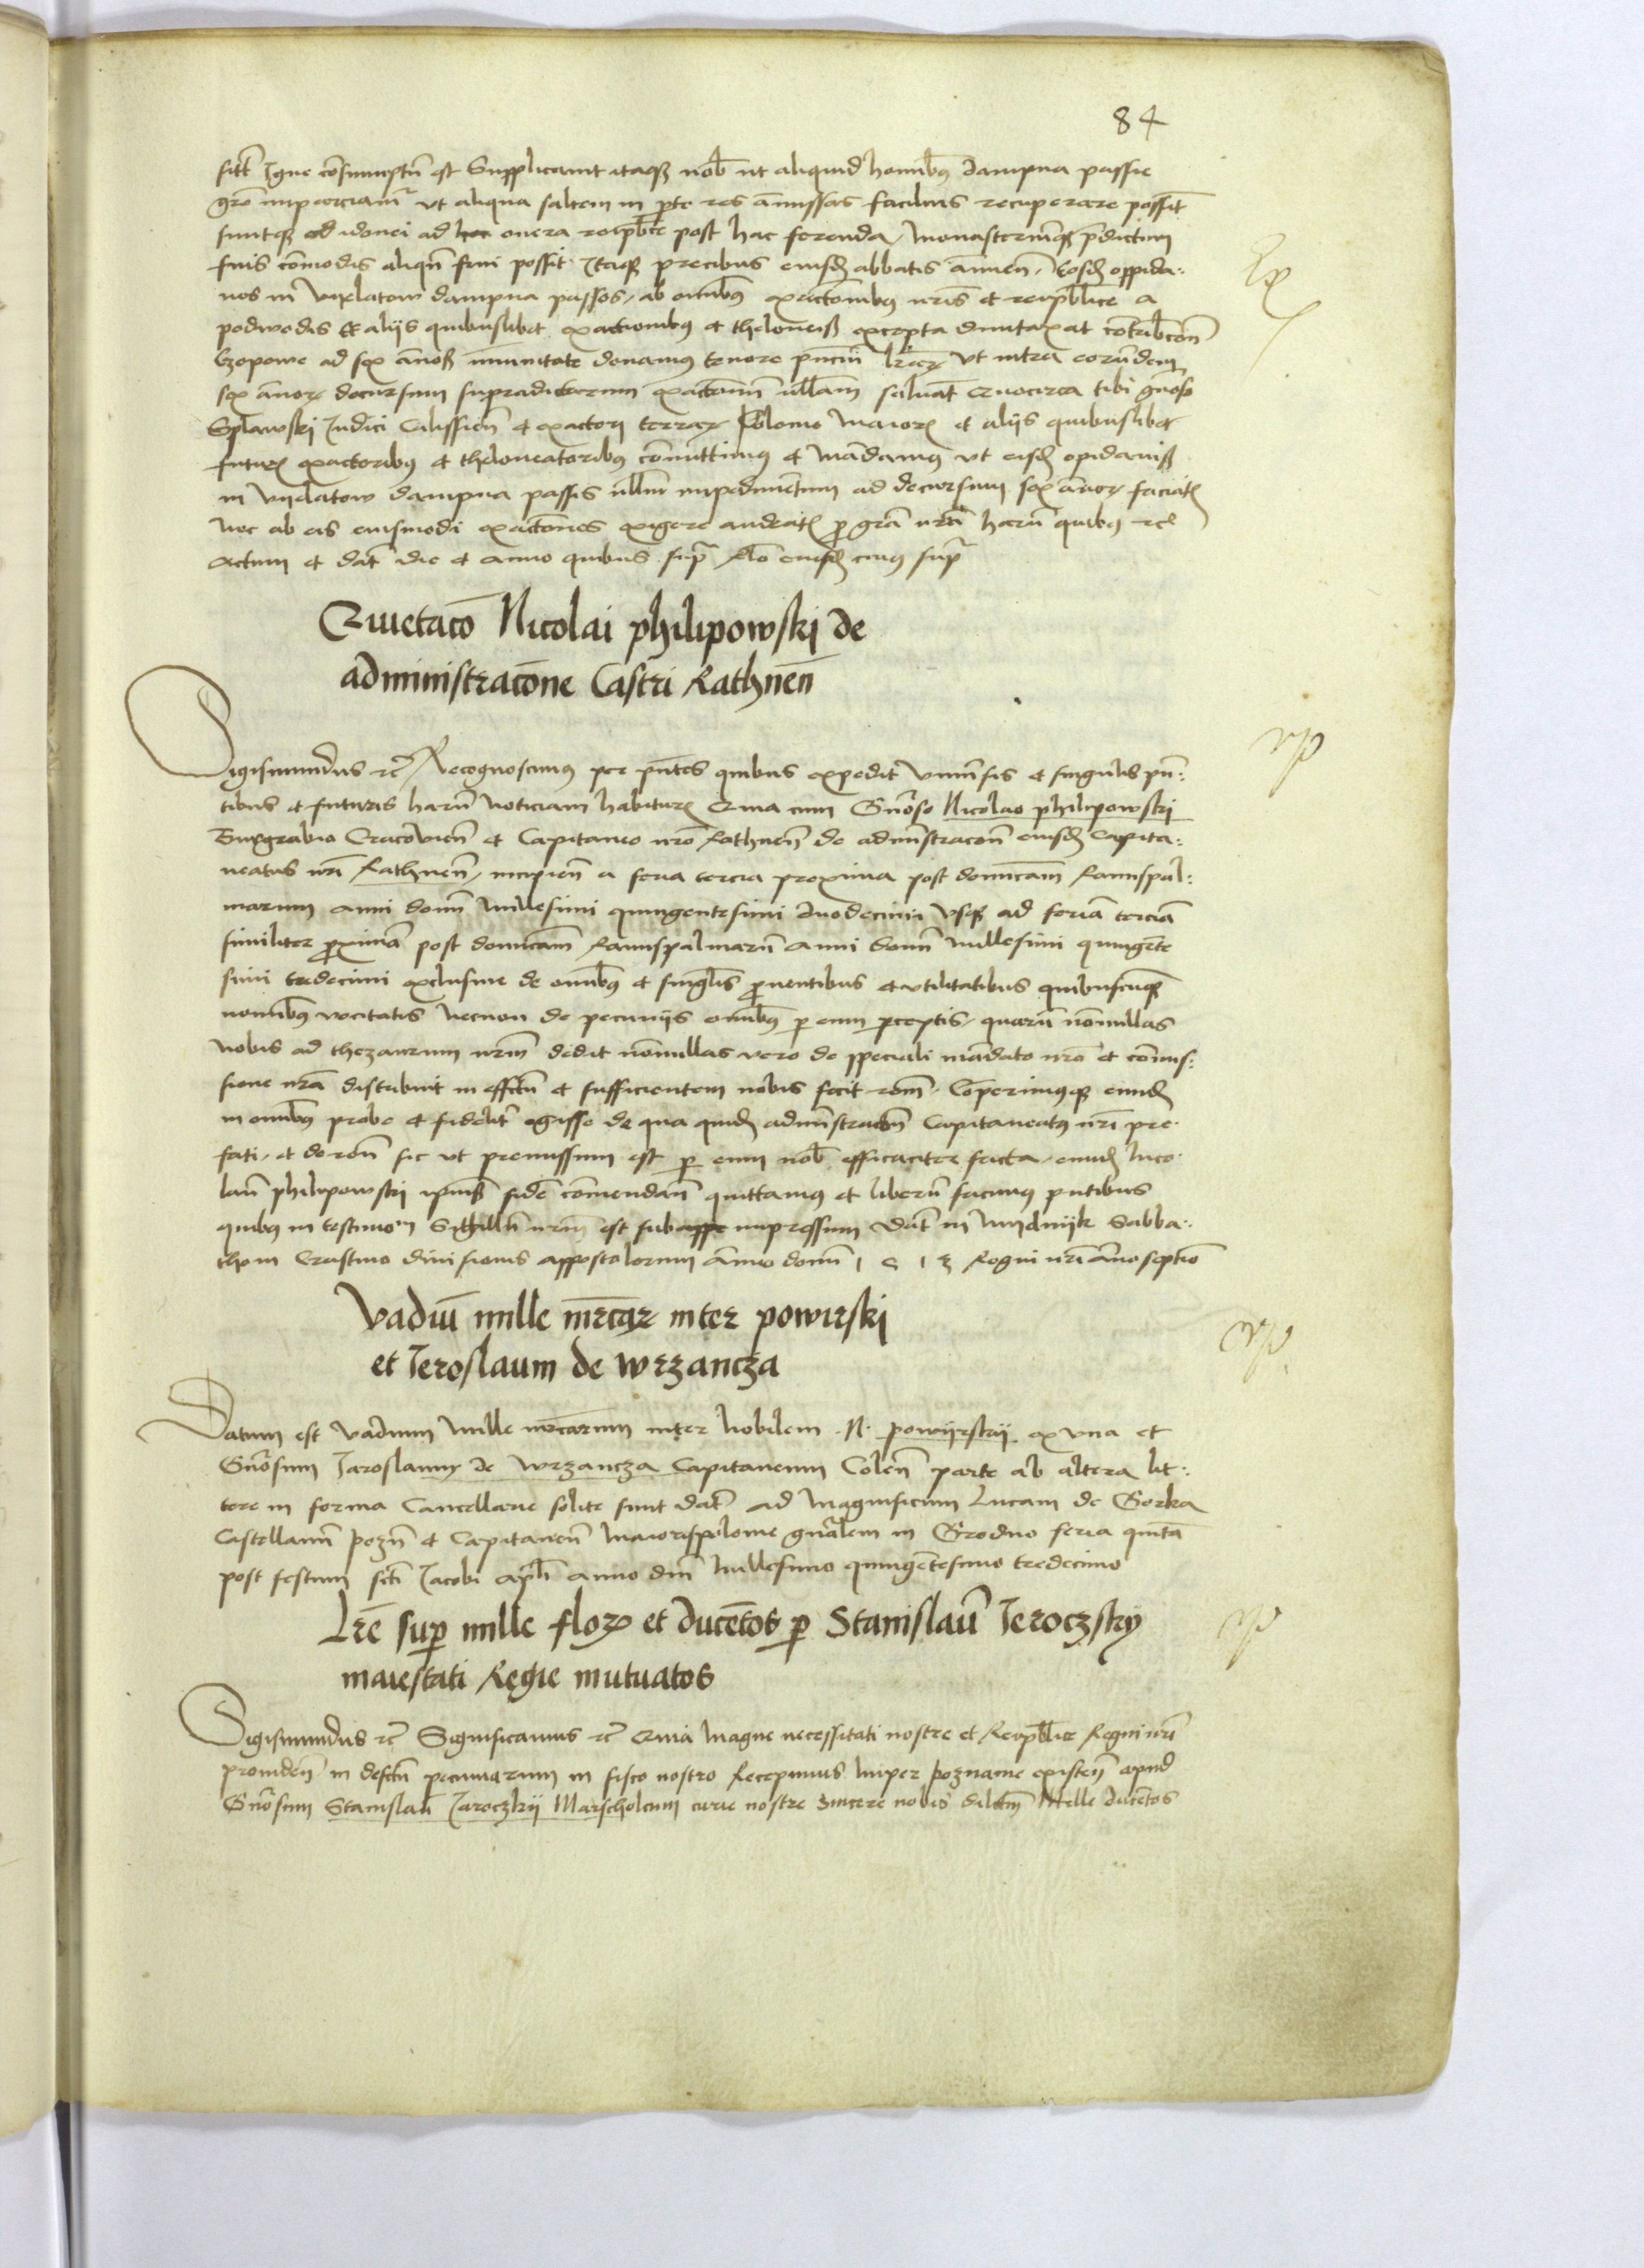 84
sitt Igne consumptu est Supplicavit itaqz nob ut aliquid hominibus dampna passis
gre imperciamur ut aliqua saltem in parte res amissas facilius recuperare possint
sintqz idonei ad onera reipublice post hac ferenda, monasteriumqz predictum
suis commodis aliqn frui possit. Itaqz precibus eiusdem abbatis annuen. Eosdem oppida:
nos in dampna passos, ab omnibus exactionibus nris et reipublice a
podwodis et aliis quibuslibet exactionibus et theloneis excepta duntaxat contribucion
Czopowe ad sex annos immunitate donamus tenore presencium lrarum Ut intra eorundem
sex annorum decursum supradictarum exactionum ullam solvant Quocirca tibi gnoso
Splawski Iudici Calissien et exactori terrar Polonie Maioris et aliis quibuslibet
futuris exactoribus et theloneatoribus committimus et mandamus ut eisdem opidanis
in dampna passis nullum impedimentum ad decursum sex annorum faciatis
nec ab eis eiusmodi exactiones exigere audeatis pro gra nra harum quibus etc
Actum et dat die et anno quibus supra Rlo eiusdem cuius supra
Quietaco Nicolai philipowski de
administracone Castri Rathnen
Sigismundus etc Recognoscimus per pntes quibus expedit universis et singulis pn:
tibus et futuris harum noticiam habituris Quia cum Gnoso Nicolao philipowski
Burgrabio Cracovien et Capitaneo nro Rathnen de administracon eiusdem Capita:
neatus nri Rathnen, incipien a feria tercia proxima post dominicam Ramispal:
marum anni domini Millesimi quingentesimi duodecimi usqz ad feriam terciam
similiter proximam post dominicam Ramispalmarum Anni domini millesimi quingente
simi tredecimi exclusive de omnibus et singulis proventibus et utilitatibus quibuscunqz
nominibus vocitatis Necnon de pecuniis omnibus per eum perceptis, quarum nonnullas
nobis ad thezaurum nrm dedit nonnullas vero de speciali mandato nro et commis:
sione nra distribuit in effectum et sufficientem nobis fecit ronem. Comperimusqz eundem
in omnibus probe et fideliter egisse de qua quidem administracon Capitaneatus nri pre
fati, et de ron sic ut premissum est per eum nob efficaciter facta, eundem Nico
laum philipowski ipsiusqz fidem commendan quittamus et liberum facimus pntibus
quibus in testimon Sigillum nrm est sub impressum Dat in sabba:
tho in Crastino divisionis appostolorum Anno domini 1513 Regni nri Anno septimo
Vadiu mille mrcar inter powirski
et Jeroslaum de wrzancza
Datum est vadium Mille mrcarum inter Nobilem .N. powyrskij ex una et
Gnosum Jaroslaum de Wrzancza Capitaneum Colen parte ab altera lit:
tere in forma Cancellarie solite sunt dat ad Magnificum Lucam de Gorka
Castellanum pozn et Capitaneum Maiorispolonie gnralem in Grodno feria quinta
post festum scti Jacobi apli anno dni Millesimo quingentesimo tredecimo
Lre sup mille flor et ducentos p Stanislau Jeroczsky
maiestati Regie mutuatos
Sigismundus etc Significamus etc Quia Magne necessitati nostre et Reipublice Regni nri
providen in defectu pecuniarum in fisco nostro Recepimus Nuper pozname existen apud
Gnosum Stanislau Jaroczkij Marscholcum curie nostre sincere nobis dilectum Mille ducentos